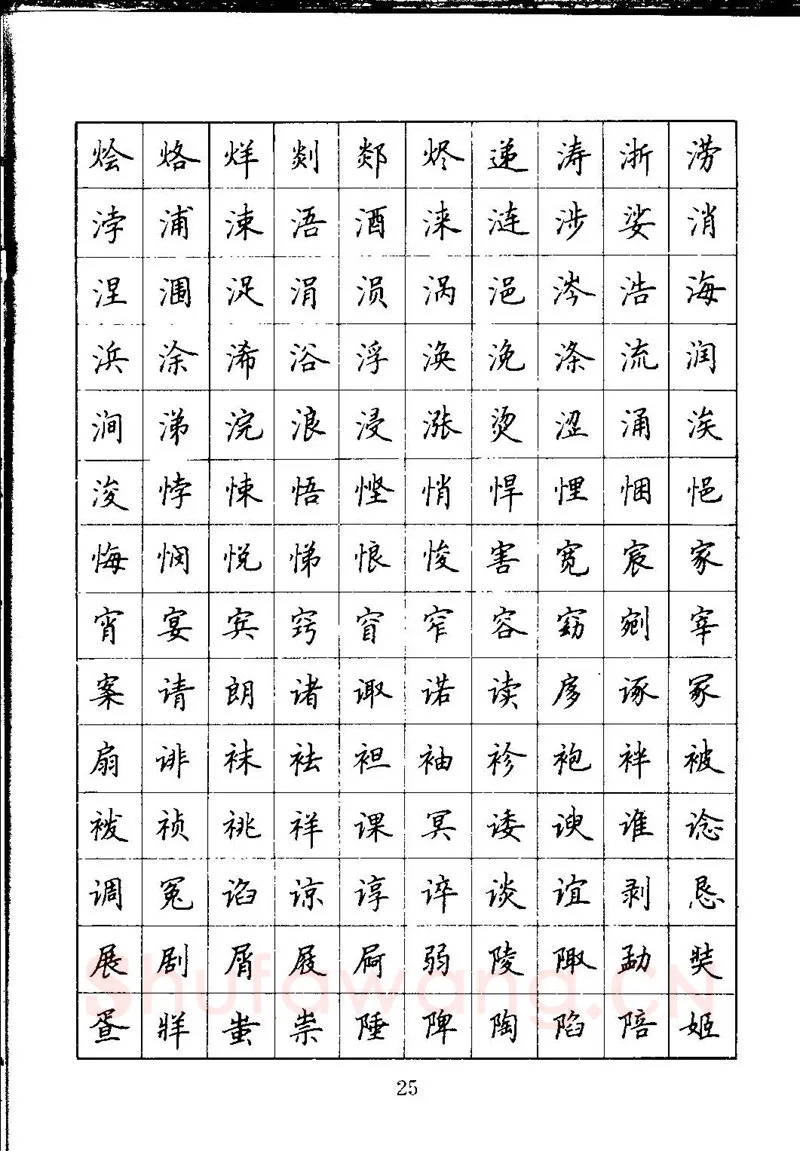 烩 烙 烊 剡 郯 烬 递 涛 浙 涝
浡 浦 涑 浯 酒 涞 涟 涉 娑 消
涅 涠 浞 涓 涢 涡 浥 涔 浩 海
浜 涂 浠 浴 浮 涣 浼 涤 流 润
涧 涕 浣 浪 浸 涨 烫 涩 涌 涘
浚 悖 悚 悟 悭 悄 悍 悝 悃 悒
悔 悯 悦 悌 悢 悛 害 宽 宸 家
宵 宴 宾 窍 窅 窄 容 窈 剜 宰
案 请 朗 诸 诹 诺 读 扅 诼 冢
扇 诽 袜 袪 袒 袖 袗 袍 袢 被
袯 祯 祧 祥 课 冥 诿 谀 谁 谂
调 冤 谄 谅 谆 谇 谈 谊 剥 恳
展 剧 屑 屐 屙 弱 陵 陬 勐 奘
疍 牂 蚩 祟 陲 陴 陶 陷 陪 姬
25
Shufawang.CN